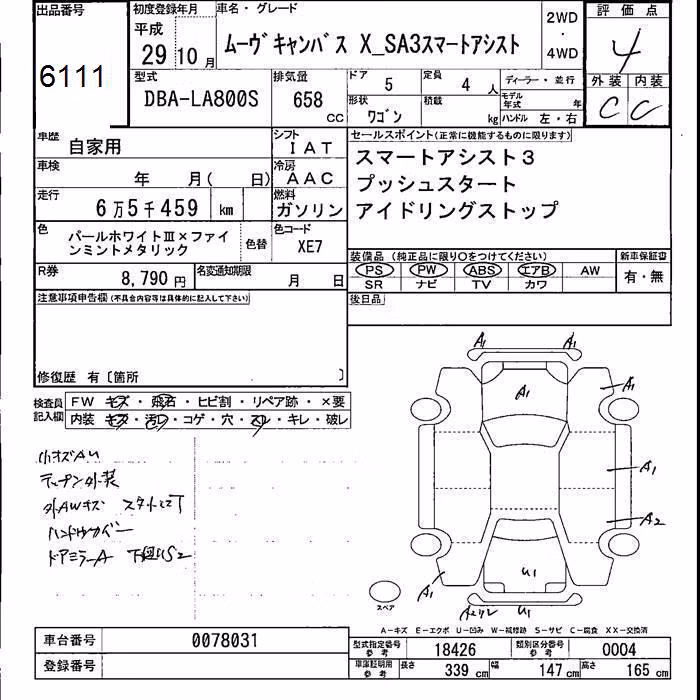 出品番号 初度登録年月 車名・グレード 2WD 評価点
平成 ・
29 10月 ムーヴキャンバス X_SA3スマートアシスト 4WD 4
6111 型式 排気量 ドア 5 定員 4人 ディーラー・並行 外装 内装
DBA-LA800S 658 cc 形状 ワゴン 積載 kg モデル年式 年 C C
ハンドル 左・右
車歴 自家用 シフト IAT セールスポイント(正常に機能するものに限ります)
車検 年 月( 日) 冷房 AAC スマートアシスト3
走行 6万5千459 km 燃料 ガソリン プッシュスタート
アイドリングストップ
色 パールホワイトⅢ×ファインミントメタリック 色替 色コード XE7
装備品 (純正品に限り○をつけてください) 新車保証書
R券 8,790円 名変通知期限 月 日 PS PW ABS エアB AW 有・無
SR ナビ TV カワ
注意事項申告欄(不具合内容等は具体的に記入して下さい) 後日品
修復歴 有〔箇所 〕
検査員記入欄 FW キズ・飛石・ヒビ割・リペア跡・×要
内装 キズ・汚レ・コゲ・穴・スレ・キレ・破レ
A1 A1
A1 A1
A1
A2
小キズAU
外AWキズ
ハンドルカバー
ドアミラーA
A1 U1
U1
スペア
A-キズ E-エクボ U-凹み W-補修跡 S-サビ C-腐食 XX-交換済
車台番号 0078031 型式指定番号 参考 18426 類別区分番号 参考 0004
登録番号 車庫証明用 参考 長さ 339cm 幅 147cm 高さ 165cm